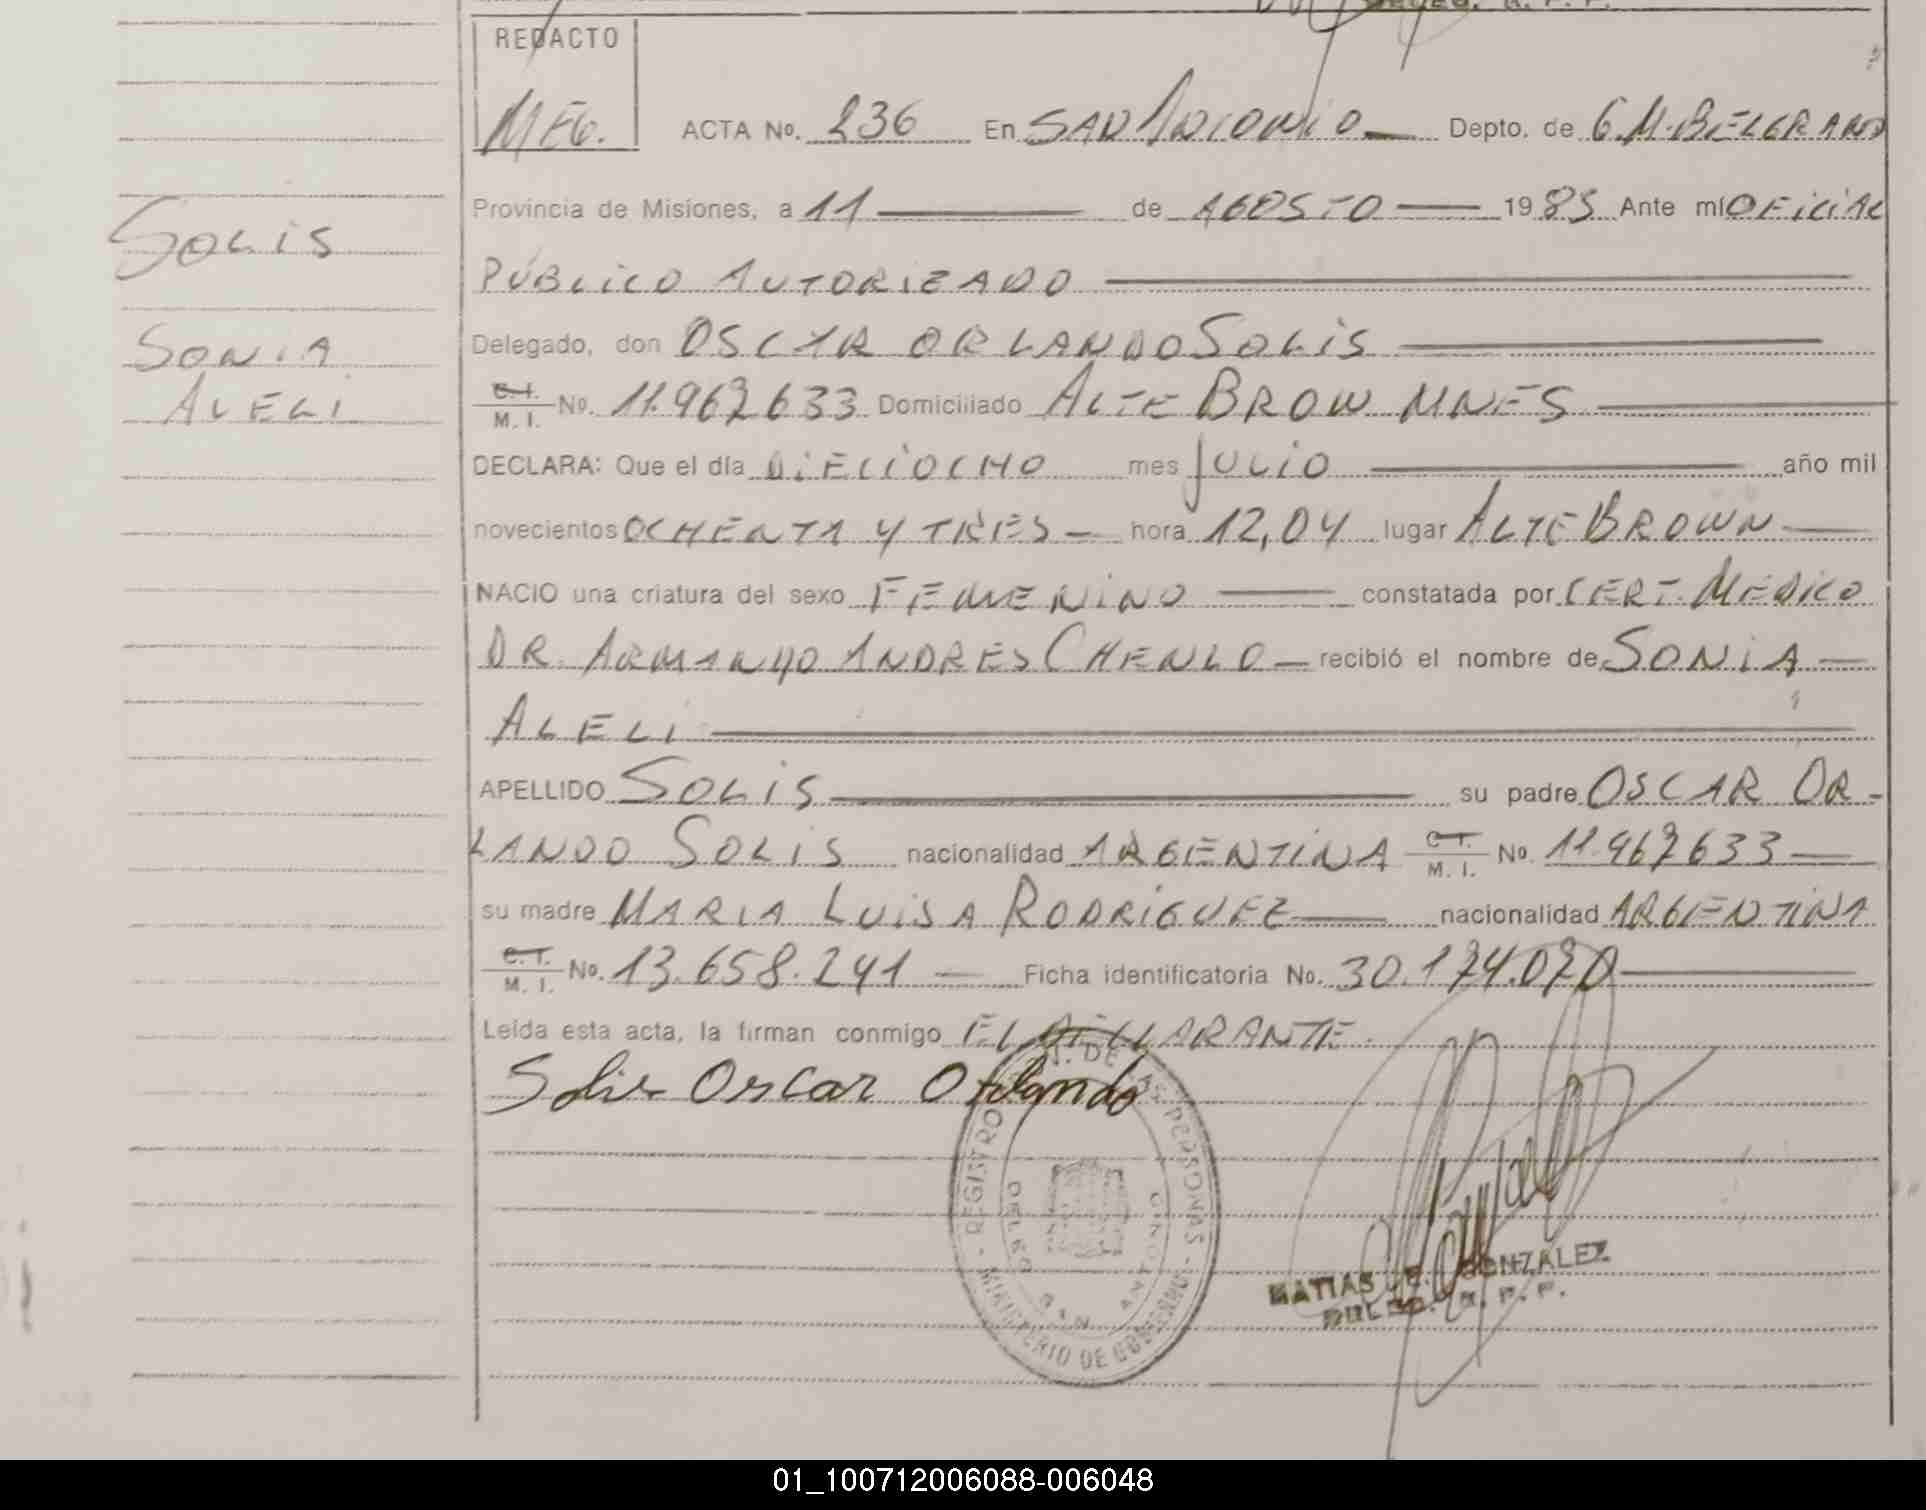 REDACTO
MEG.
ACTA No. 236 En SAN ANTONIO Depto. de G.M. BELGRANO
Provincia de Misiones, a 11 de AGOSTO 1983 Ante mí OFICIAL
PÚBLICO AUTORIZADO
Delegado, don OSCAR ORLANDO SOLIS
C.I. M. I. No. 11.967.633 Domiciliado ALTE BROW MNES
DECLARA: Que el día DIECIOCHO mes JULIO año mil
novecientos OCHENTA Y TRES hora 12,04 lugar ALTE BROWN
NACIO una criatura del sexo FEMENINO constatada por CERT. MEDICO
DR. ARMANDO ANDRES CHENLO recibió el nombre de SONIA
ALELI
APELLIDO SOLIS su padre OSCAR OR-
LANDO SOLIS nacionalidad ARGENTINA C.I. M. I. No. 11.967.633
su madre MARIA LUISA RODRIGUEZ nacionalidad ARGENTINA
C.I. M. I. No. 13.658.241 Ficha identificatoria No. 30.174.070
Leída esta acta, la firman conmigo EL DECLARANTE.
Solis Oscar Orlando
SOLIS
SONIA
ALELI
REGISTRO DE LAS PERSONAS - MINISTERIO DE GOBIERNO -
DELEG. SAN ANTONIO
MATIAS E. GONZALEZ
DELEG. R. P. P.
01_100712006088-006048